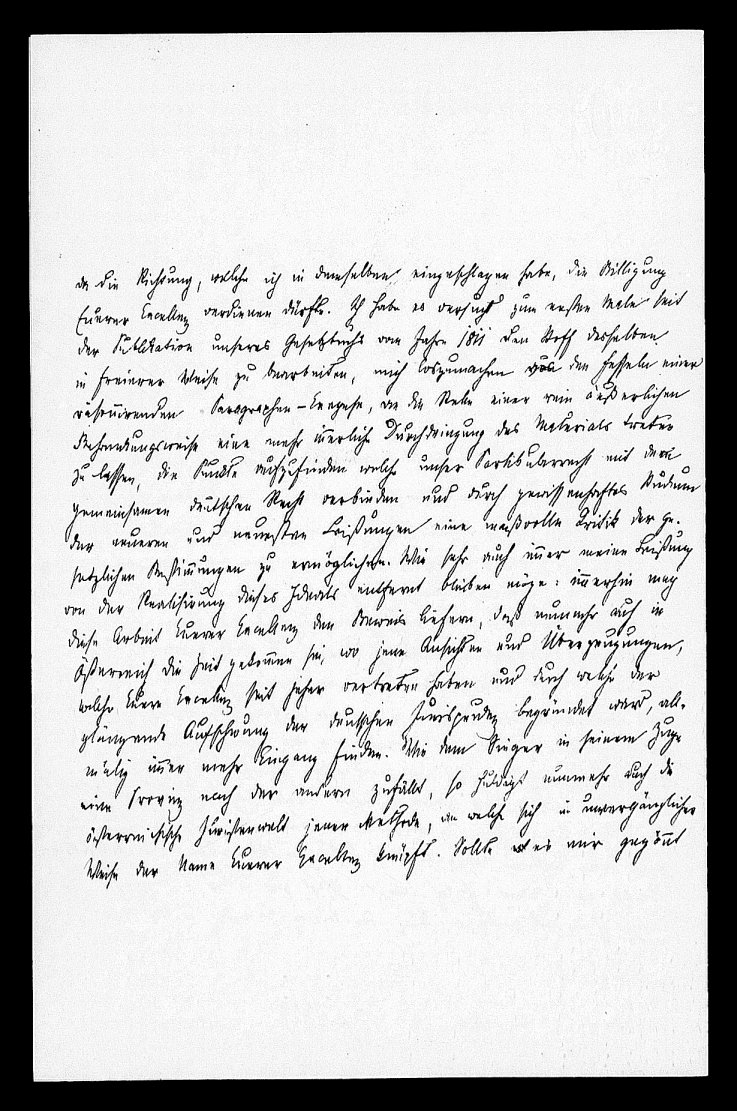 da die Richtung, welche ich in demselben eingeschlagen habe, die Billigung
Euerer Excellenz verdienen dürfte. Ich habe es versucht zum ersten Male seit
der Publikation unseres Gesetzbuchs vom Jahre 1811 den Stoff desselben
in freierer Weise zu bearbeiten, mich loszumachen von den Fesseln einer
räsonnirenden Paragraphen-Exegese, an die Stelle einer rein äußerlichen
Behandlungsweise eine mehr innerliche Durchdringung des Materials treten
zu lassen, die Punkte aufzufinden welche unser Partikularrecht mit dem
gemeinsamen deutschen Recht verbinden und durch gewissenhaftes Studium
der neueren und neuesten Leistungen eine maßvolle Kritik der ge-
setzlichen Bestimmungen zu ermöglichen. Wie sehr auch immer meine Leistung
von der Realisirung dieses Ideals entfernt bleiben möge: immerhin mag
diese Arbeit Euerer Excellenz den Beweis liefern, daß nunmehr auch in
Österreich die Zeit gekommen sei, wo jene Ansichten und Überzeugungen,
welche Euere Excellenz seit jeher vertreten haben und durch welche der
glänzende Aufschwung der deutschen Jurisprudenz begründet ward, all-
mälig immer mehr Eingang finden. Wie dem Sieger in seinem Zuge
eine Provinz nach der andern zufällt, so huldigt nunmehr auch die
österreichische Juristenwelt jener Methode, an welche sich in unvergänglicher
Weise der Name Euerer Excellenz knüpft. Sollte es mir gegönnt